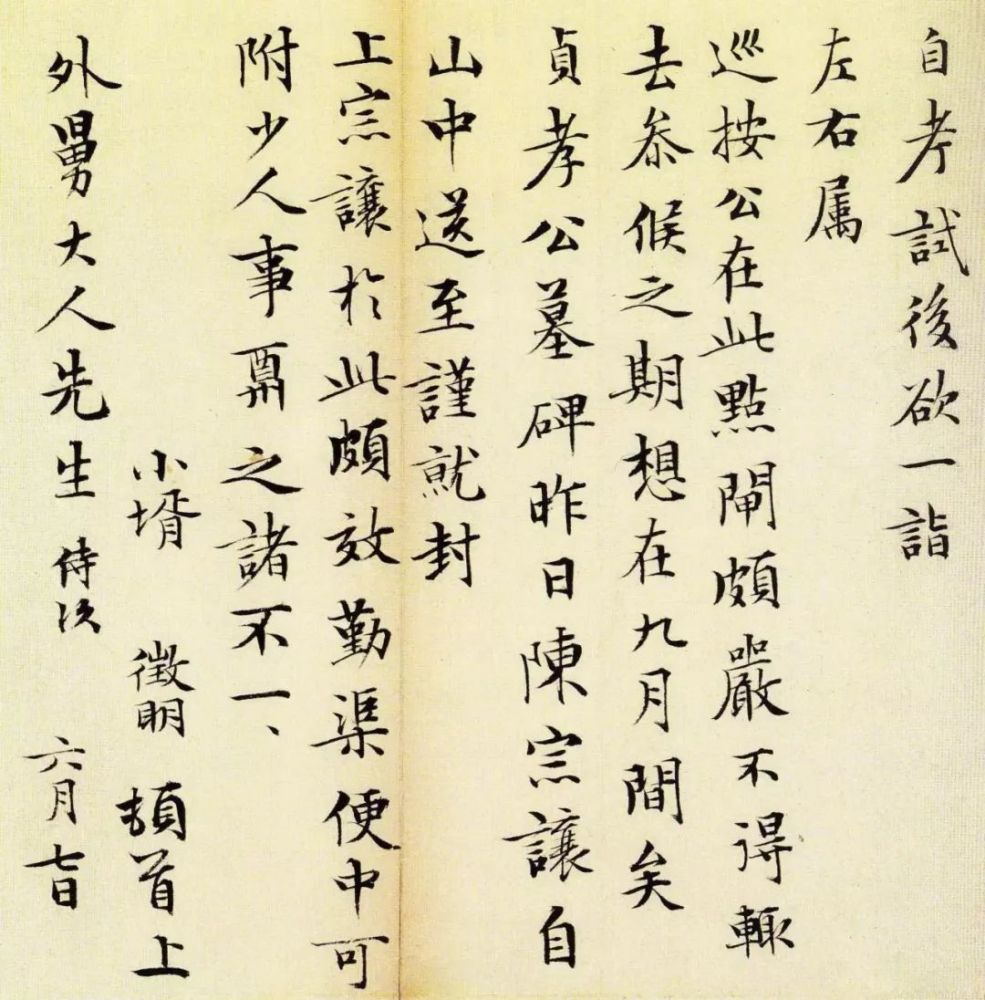 自考試後欲一詣
左右属
巡按公在此點閘頗嚴不得輙
去叅候之期想在九月間矣
貞孝公墓碑昨日陳宗讓自
山中送至謹就封
上宗讓於此頗效勤渠便中可
附少人事酬之諸不一、
小壻 徵明 頓首上
外舅大人先生 侍次 六月七日